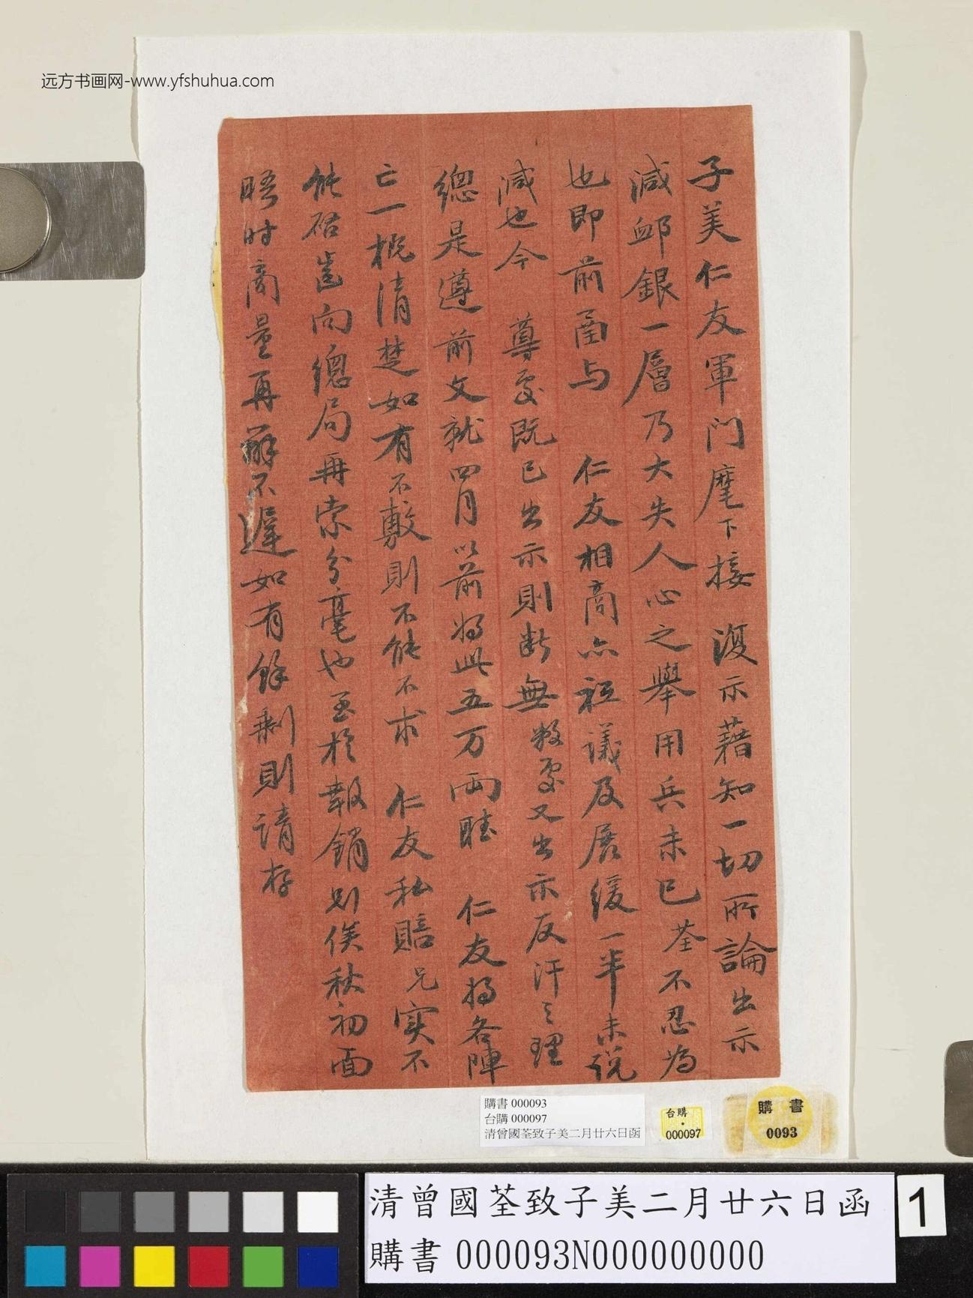 远方书画网-www.yfshuhua.com
子美仁友軍門麾下接 復示藉知一切所論出示
減卹銀一層乃大失人心之舉用兵未已荃不忍為
也即前函与 仁友相商亦祗議及展緩一半未說
減也今 尊處既已出示則斷無敝處又出示反汗之理
總是遵前文就四月以前將此五万兩賍 仁友將各陣
亡一概清楚如有不敷則不能不求 仁友私賠兄實不
能啟齒向總局再索分毫也至於報銷則俟秋初面
晤时商量再辦不遲如有餘剩則請存
購書 000093
台購 000097
清曾國荃致子美二月廿六日函
台購
·
000097
購書
0093
清曾國荃致子美二月廿六日函
購書 000093N000000000
1